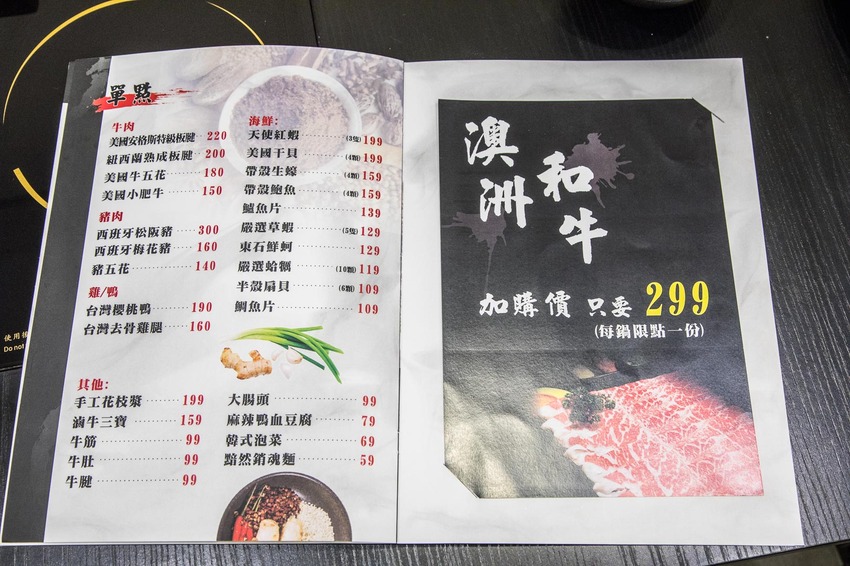 單點
牛肉
美國安格斯特級板腱 220
紐西蘭熟成板腱 200
美國牛五花 180
美國小肥牛 150
豬肉
西班牙松阪豬 300
西班牙梅花豬 160
豬五花 140
雞/鴨
台灣櫻桃鴨 190
台灣去骨雞腿 160
海鮮:
天使紅蝦 (3隻)199
美國干貝 (4顆)199
帶殼生蠔 (4顆)159
帶殼鮑魚 (4顆)159
鱸魚片 139
嚴選草蝦 (5隻)129
東石鮮蚵 129
嚴選蛤蜊 (10顆)119
半殼扇貝 (6顆)109
鯛魚片 109
其他:
手工花枝漿 199
滷牛三寶 159
牛筋 99
牛肚 99
牛腱 99
大腸頭 99
麻辣鴨血豆腐 79
韓式泡菜 69
黯然銷魂麵 59
澳洲
和牛
加購價 只要 299
(每鍋限點一份)
Do not